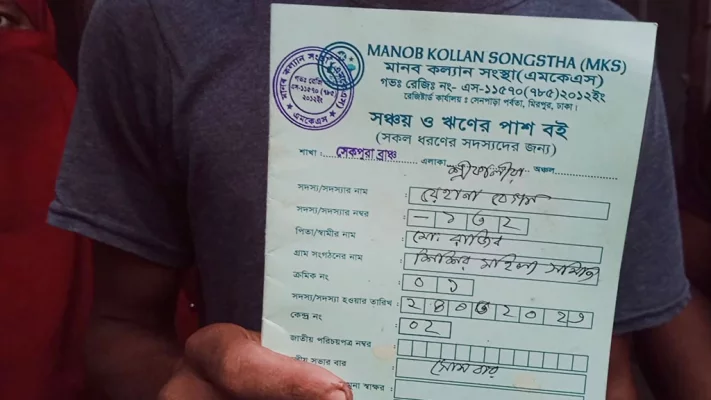 MANOB KOLLAN SONGSTHA (MKS)
মানব কল্যান সংস্থা(এমকেএস)
গভঃ রেজিঃ নং- এস-১১৫৭০(৭৮৫)২০১২ইং
রেজিষ্টার্ড কার্যালয় : সেনপাড়া পর্বতা, মিরপুর, ঢাকা।
মানব কল্যান সংস্থা
গভঃ রেজি
এস-১১৫৭০ (৭৮৫)
২০১২ইং
এমকেএস
সঞ্চয় ও ঋণের পাশ বই
(সকল ধরণের সদস্যদের জন্য)
শাখা : সেকপুরা ব্রাঞ্চ এলাকা অঞ্চল
সদস্য/সদস্যার নাম : রেহানা বেগম
সদস্য/সদস্যার নম্বর : – ১৩২
পিতা/স্বামীর নাম : মো: রাজিব
গ্রাম সংগঠনের নাম : শিশির মহিলা সমিতি
ক্রমিক নং : ০১
সদস্য/সদস্যা হওয়ার তারিখ : ২৪০৩২০২৩
কেন্দ্র নং : ০২
জাতীয় পরিচয়পত্র নম্বর :
সভার বার : সোমবার
নমুনা স্বাক্ষর :